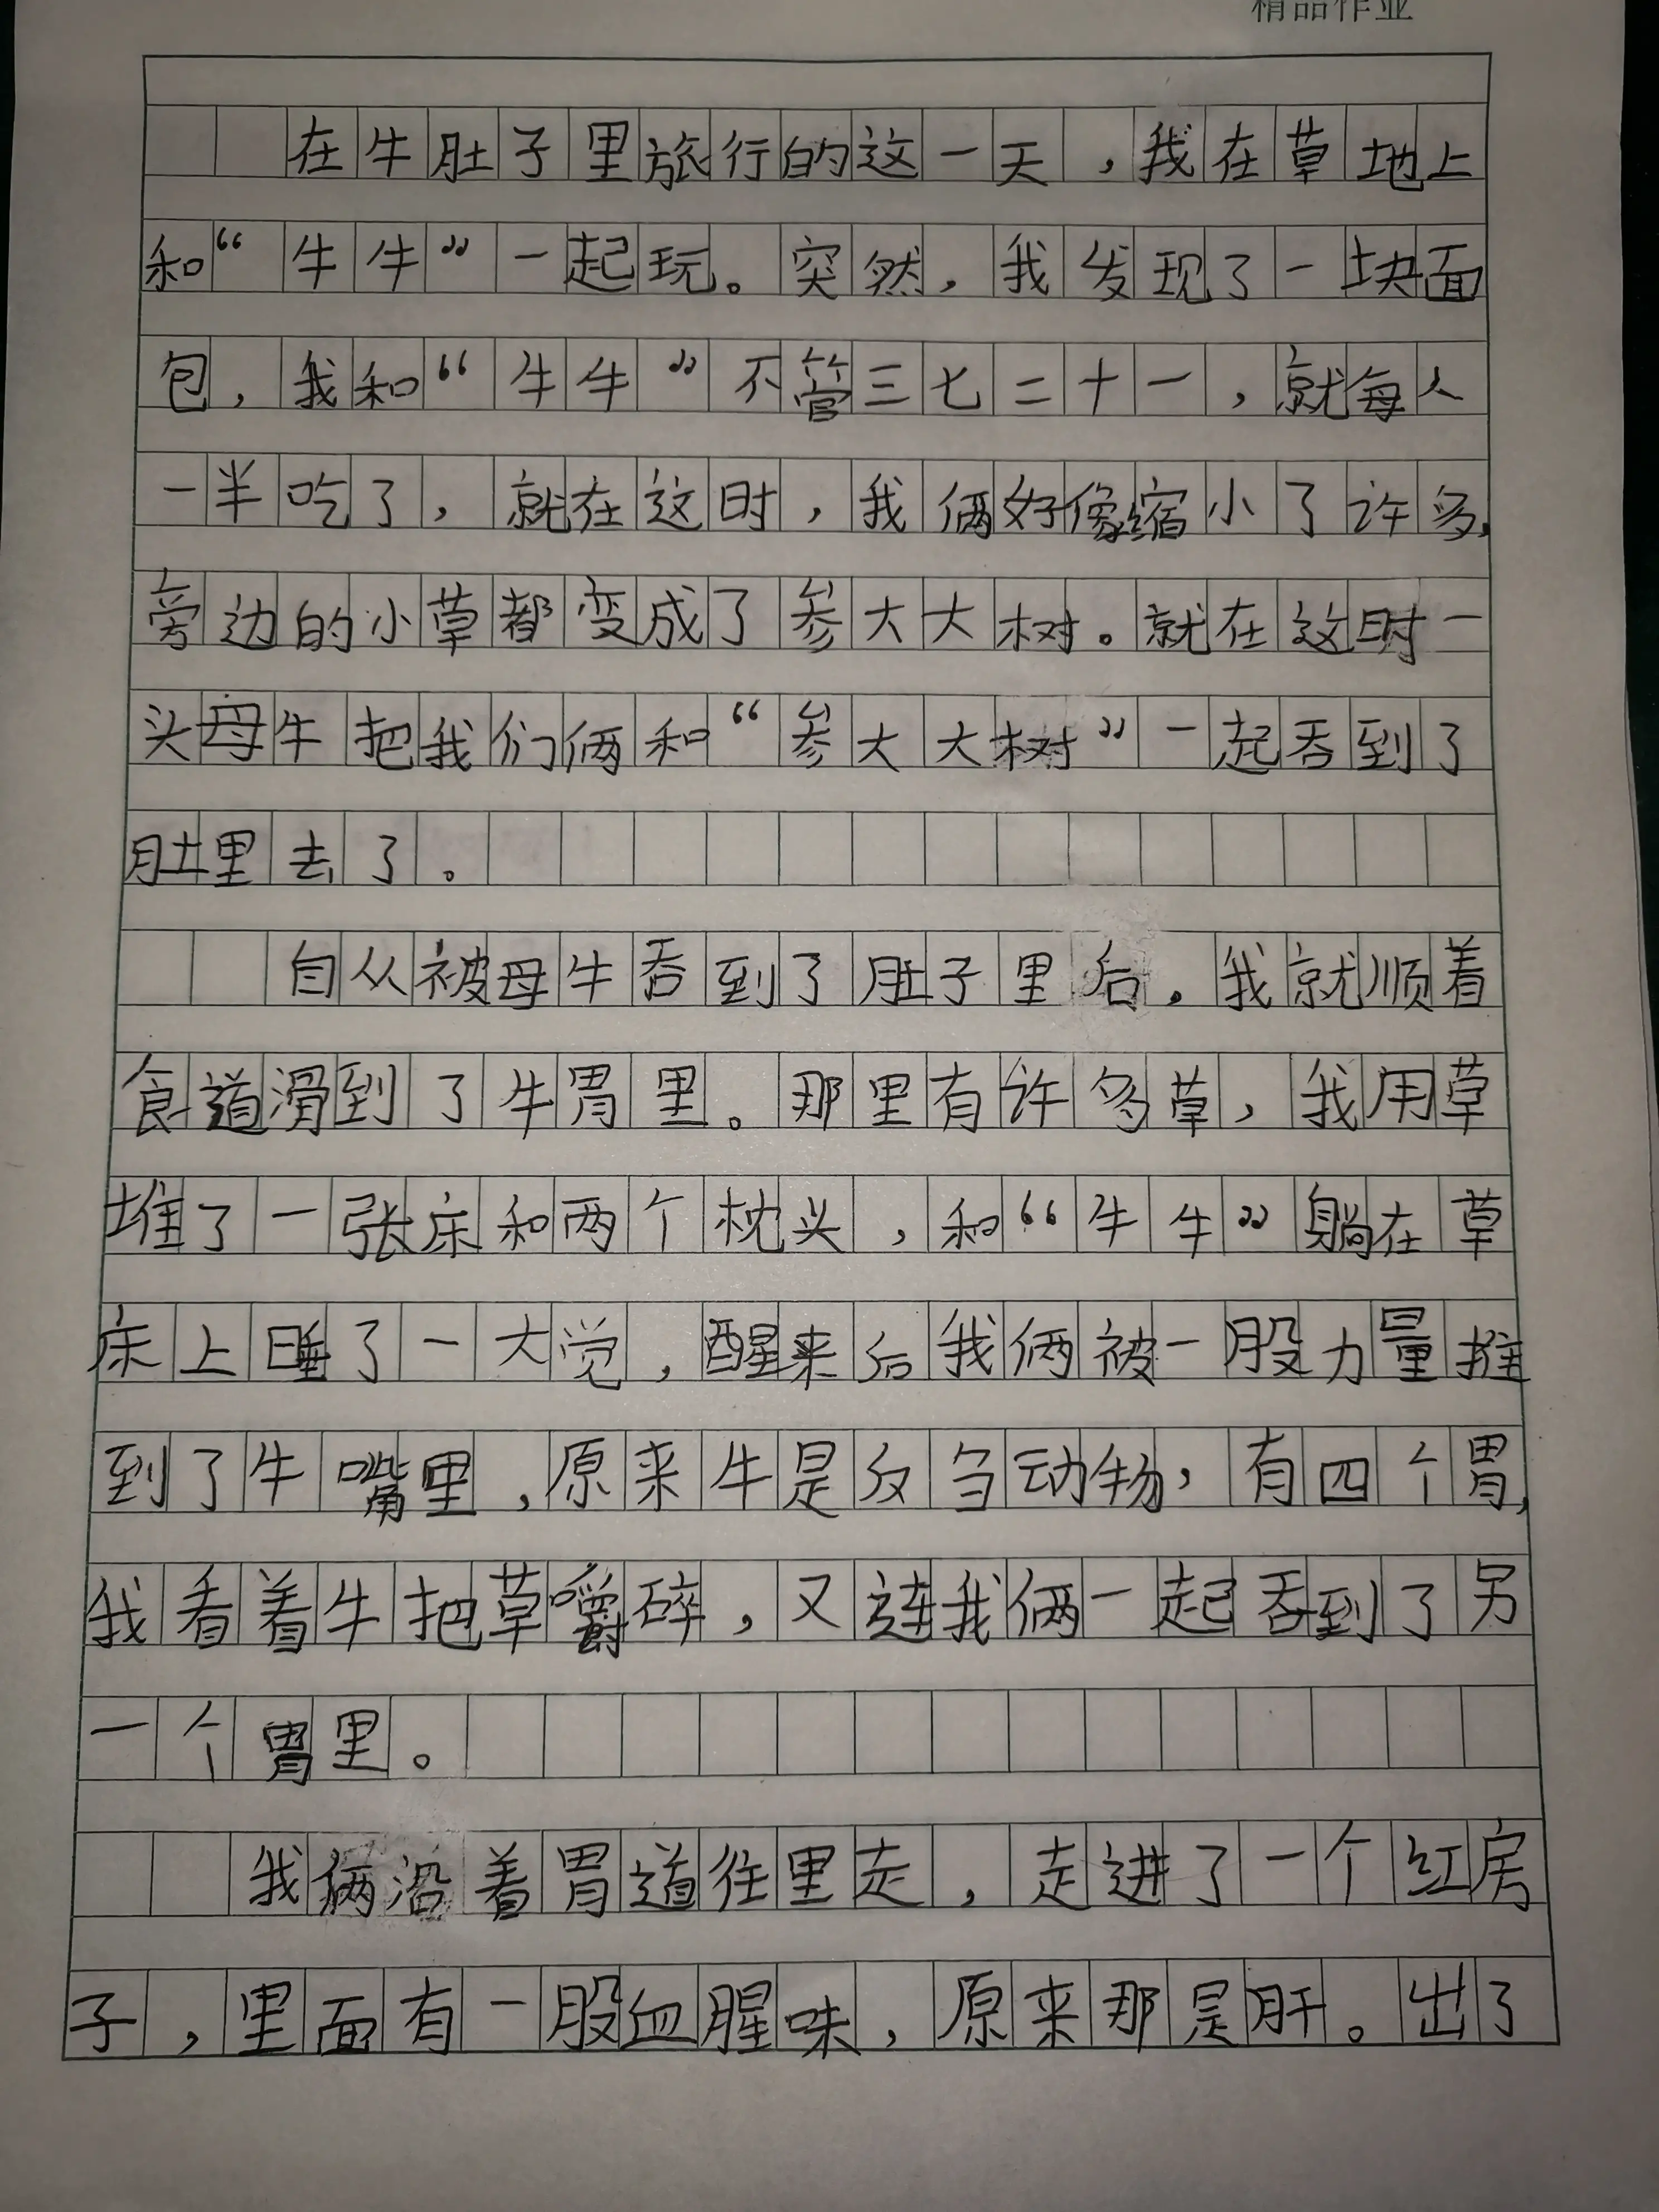 精品作业
在牛肚子里旅行的这一天，我在草地上
和“牛牛”一起玩。突然，我发现了一块面
包，我和“牛牛”不管三七二十一，就每人
一半吃了，就在这时，我俩好像缩小了许多，
旁边的小草都变成了参大大树。就在这时一
头母牛把我们俩和“参大大树”一起吞到了
肚里去了。
自从被母牛吞到了肚子里后，我就顺着
食道滑到了牛胃里。那里有许多草，我用草
堆了一张床和两个枕头，和“牛牛”躺在草
床上睡了一大觉，醒来后我俩被一股力量推
到了牛嘴里，原来牛是反刍动物，有四个胃，
我看着牛把草嚼碎，又连我俩一起吞到了另
一个胃里。
我俩沿着胃道往里走，走进了一个红房
子，里面有一股血腥味，原来那是肝。出了